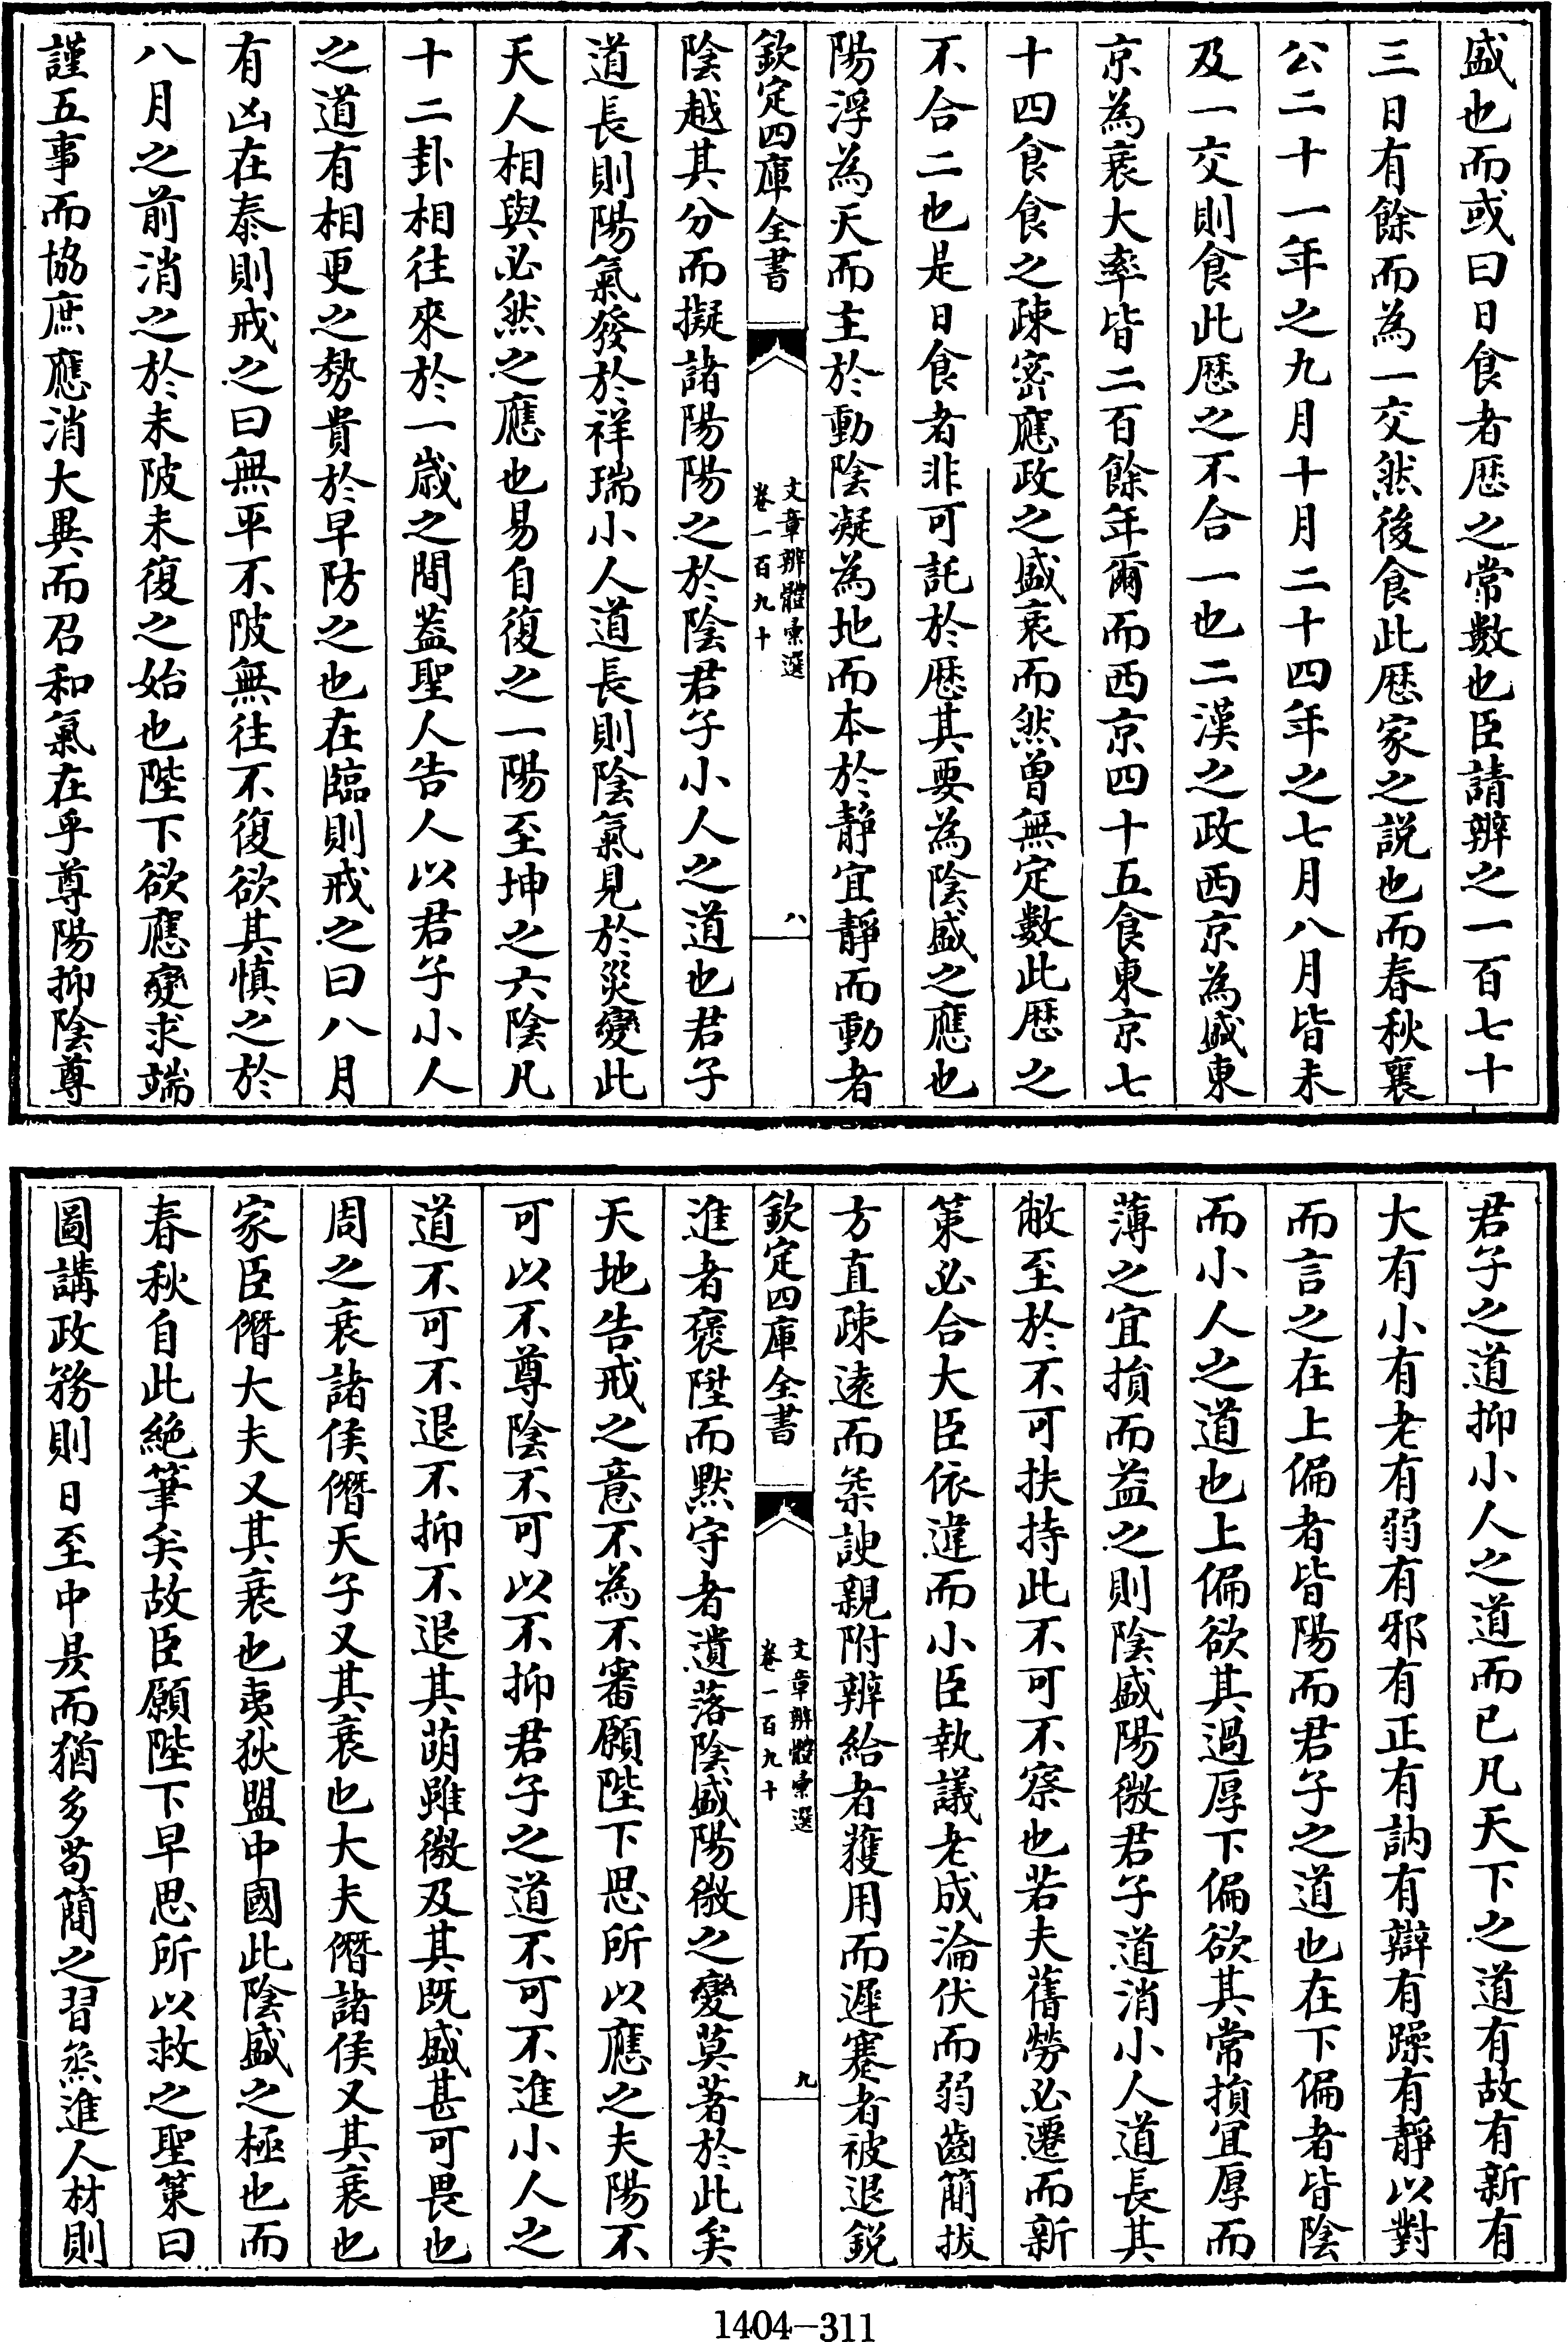 盛也而或曰日食者厯之常數也臣請辨之一百七十
三日有餘而為一交然後食此厯家之説也而春秋襄
公二十一年之九月十月二十四年之七月八月皆未
及一交則食此厯之不合一也二漢之政西京為盛東
京為衰大率皆二百餘年爾而西京四十五食東京七
十四食食之疎密應政之盛衰而然曽無定數此厯之
不合二也是日食者非可託於厯其要為陰盛之應也
陽浮為天而主於動陰凝為地而本於静宜静而動者
欽定四庫全書
文章辨體彚選
卷一百九十
八
陰越其分而擬諸陽陽之於陰君子小人之道也君子
道長則陽氣發於祥瑞小人道長則陰氣見於災變此
天人相與必然之應也易自復之一陽至坤之六陰凡
十二卦相往來於一歳之間葢聖人告人以君子小人
之道有相更之勢貴於早防之也在臨則戒之曰八月
有凶在泰則戒之曰無平不陂無往不復欲其慎之於
八月之前消之於未陂未復之始也陛下欲應變求端
謹五事而協庶應消大異而召和氣在乎尊陽抑陰尊
君子之道抑小人之道而已凡天下之道有故有新有
大有小有老有弱有邪有正有訥有辯有躁有靜以對
而言之在上偏者皆陽而君子之道也在下偏者皆陰
而小人之道也上偏欲其過厚下偏欲其常損宜厚而
薄之宜損而益之則陰盛陽微君子道消小人道長其
敝至於不可扶持此不可不察也若夫舊勞必遷而新
策必合大臣依違而小臣執議老成淪伏而弱齒簡拔
方直疎遠而柔諛親附辨給者獲用而遲蹇者被退鋭
欽定四庫全書
文章辨體彚選
卷一百九十
九
進者褒陞而黙守者遺落陰盛陽微之變莫著於此矣
天地告戒之意不為不審願陛下思所以應之夫陽不
可以不尊陰不可以不抑君子之道不可不進小人之
道不可不退不抑不退其萌雖微及其既盛甚可畏也
周之衰諸侯僭天子又其衰也大夫僭諸侯又其衰也
家臣僭大夫又其衰也夷狄盟中國此陰盛之極也而
春秋自此絶筆矣故臣願陛下早思所以救之聖策曰
圖講政務則日至中昃而猶多茍簡之習烝進人材則
1404-311